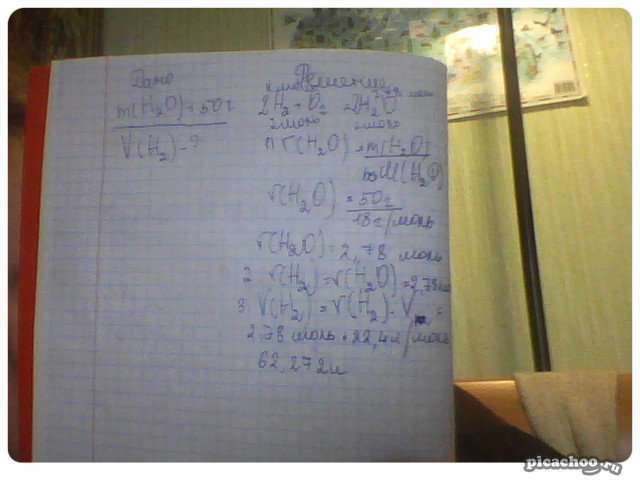 Дано
m(H₂O)=50г
V(H₂)-?
Решение
2H₂ + O₂ = 2H₂O
2моль 2моль
1) ν(H₂O) = m(H₂O)
M(H₂O)
ν(H₂O) = 50г
18г/моль
ν(H₂O)=2,78 моль
2 ν(H₂)=ν(H₂O)=2,78
3 V(H₂) = ν(H₂)·V =
2,78 моль · 22,4л/моль
62,272л
picachoo.ru